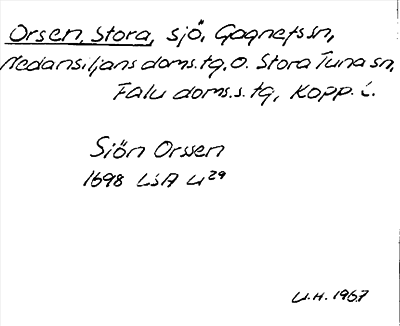 Orsen, Stora, sjö, Gagnefs sn,
Nedansiljans doms.tg. o. Stora Tuna sn,
Falu doms.s.tg, Kopp. l.
Sjön Orssen
1698 LSA U29
U.H. 1967